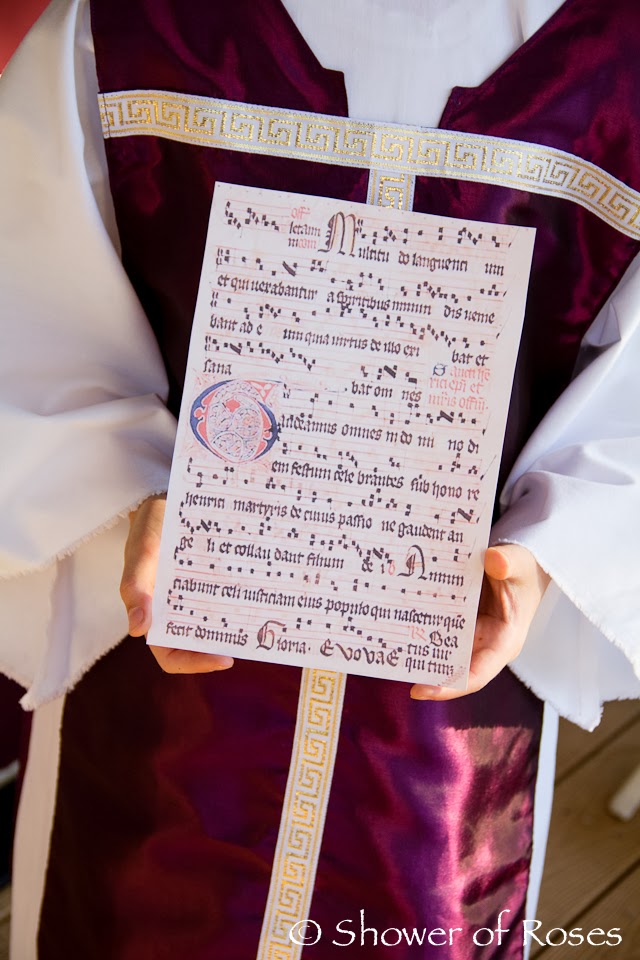 off
letam Multitu do languenti um
m com
et qui vexabantur a spiritibus inmun dis veme
bant ad e um quia virtus de illo exi bat et
sana bat om nes
Gaudeamus omnes in do mi no di
em festum cele brantes sub hono re
henrici martyris de cuius passio ne gaudent an
ge li et collau dant filium
Annun
ciabunt celi iusticiam eius populo qui nascetur que
fecit dominus Gloria. EVOVAE Bea
qui tim
© Shower of Roses